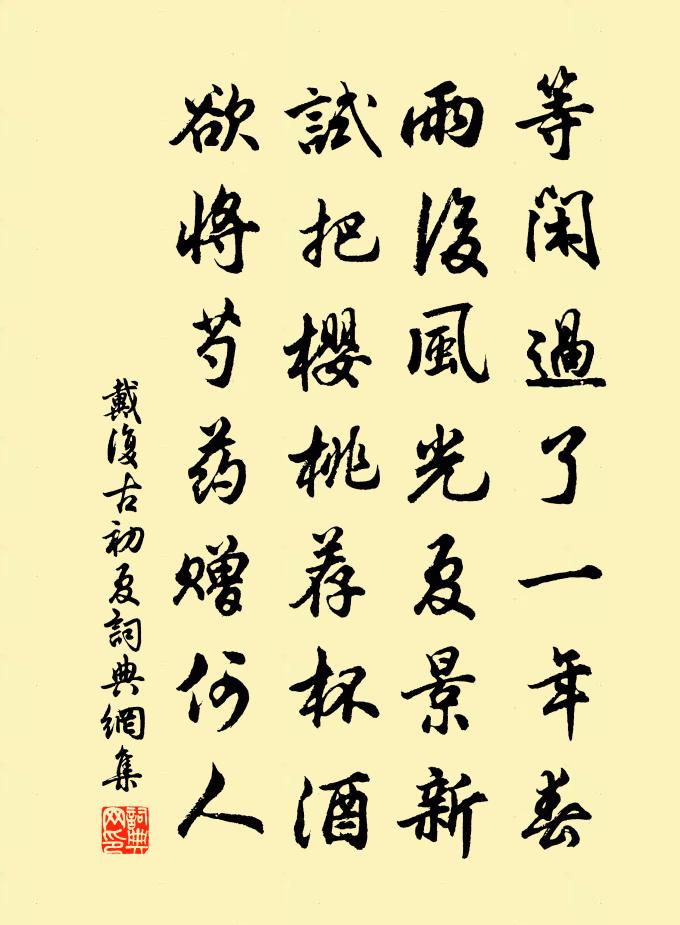 等閑過了一年春
雨後風光夏景新
試把櫻桃荐杯酒
欲將芍药贈何人
戴復古初夏詞典網集
詞典网印